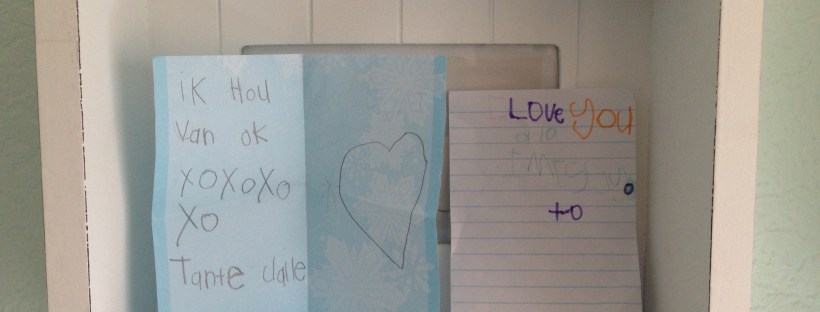 iK Hou
Van ok
XOXOXo
Xo
Tante
Love You
to